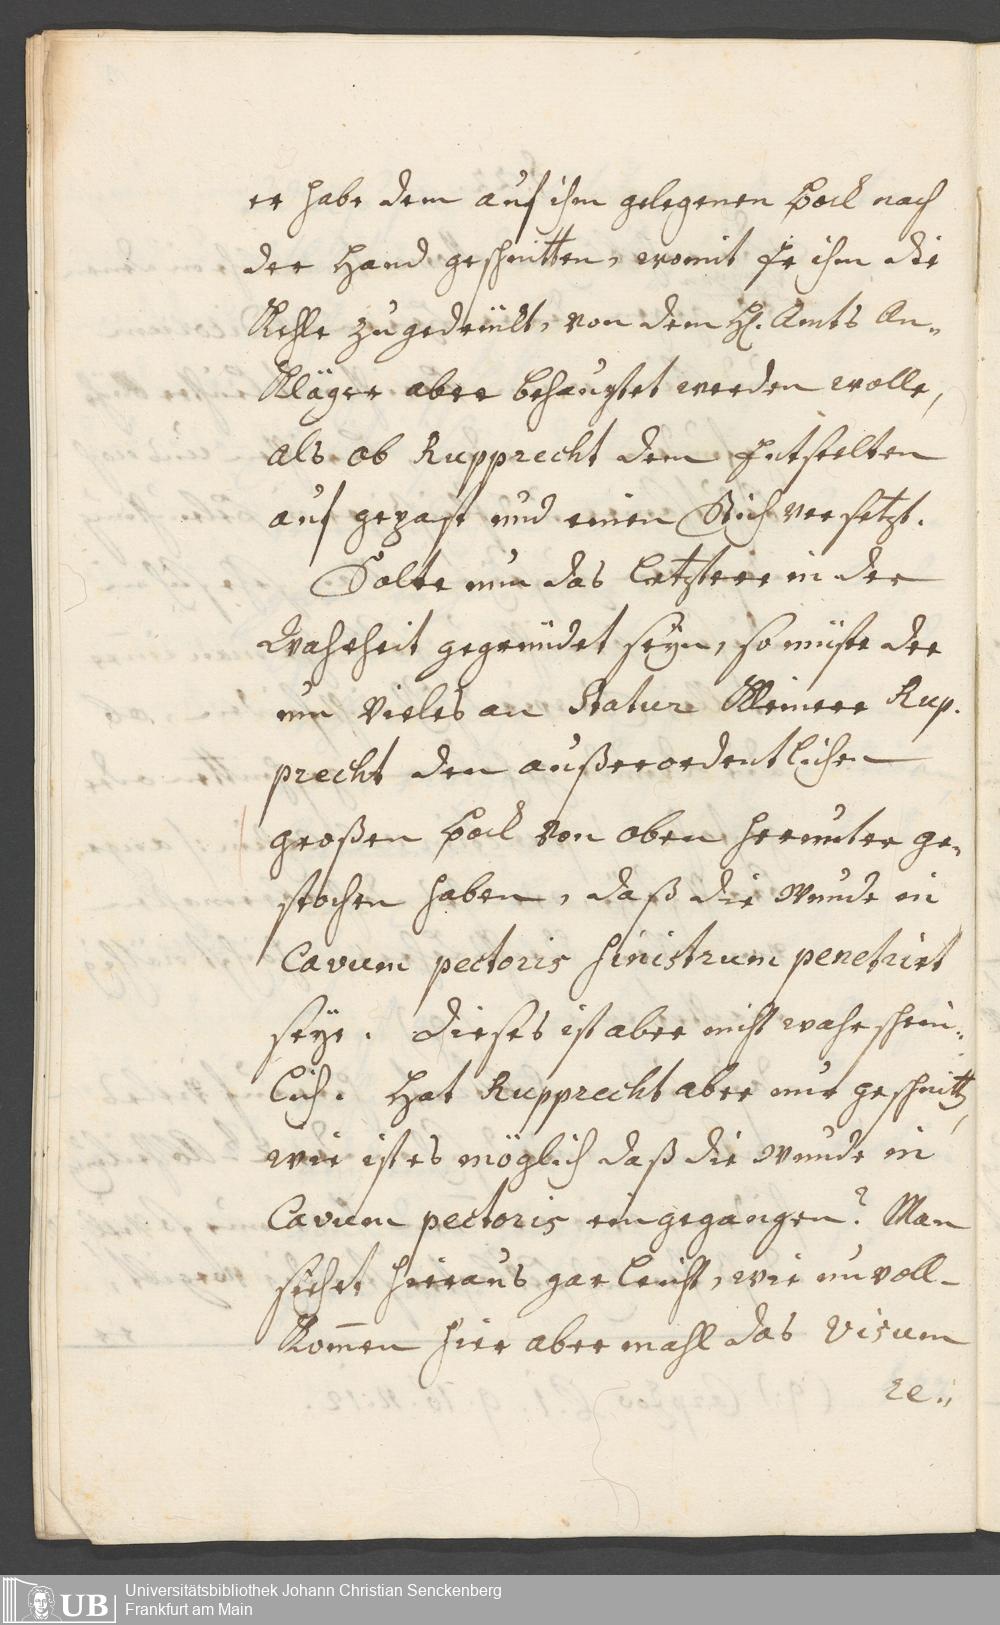 er habe dem auf ihm gelegenen Bock nach
der Hand geschnitten, womit Er ihm die
Kehle zugedruckt, von dem H. Amts An„
Kläger aber behauptet werden wolle,
als ob Rupprecht dem Entseelten
auf gepaßt und einen Stich versetzt.
Solte nun das letztere in der
Wahrheit gegründet seyn, so müste der
um Vieles an Statur Kleinere Rup.
precht den außerordentlichen
großen Bock von oben herunter ge„
stochen haben, daß die Wunde in
Cavum pectoris sinistrum penetrirt
seye. Dieses ist aber nicht wahrschein„
lich. Hat Rupprecht aber nur geschnitt,
wie ist es möglich daß die Wunde in
Cavum pectoris eingegangen? Man
siehet hieraus gar leicht, wie unvoll-
Kom̄en hier abermahl das Visum
re„
Universitätsbibliothek Johann Christian Senckenberg
Frankfurt am Main
UB